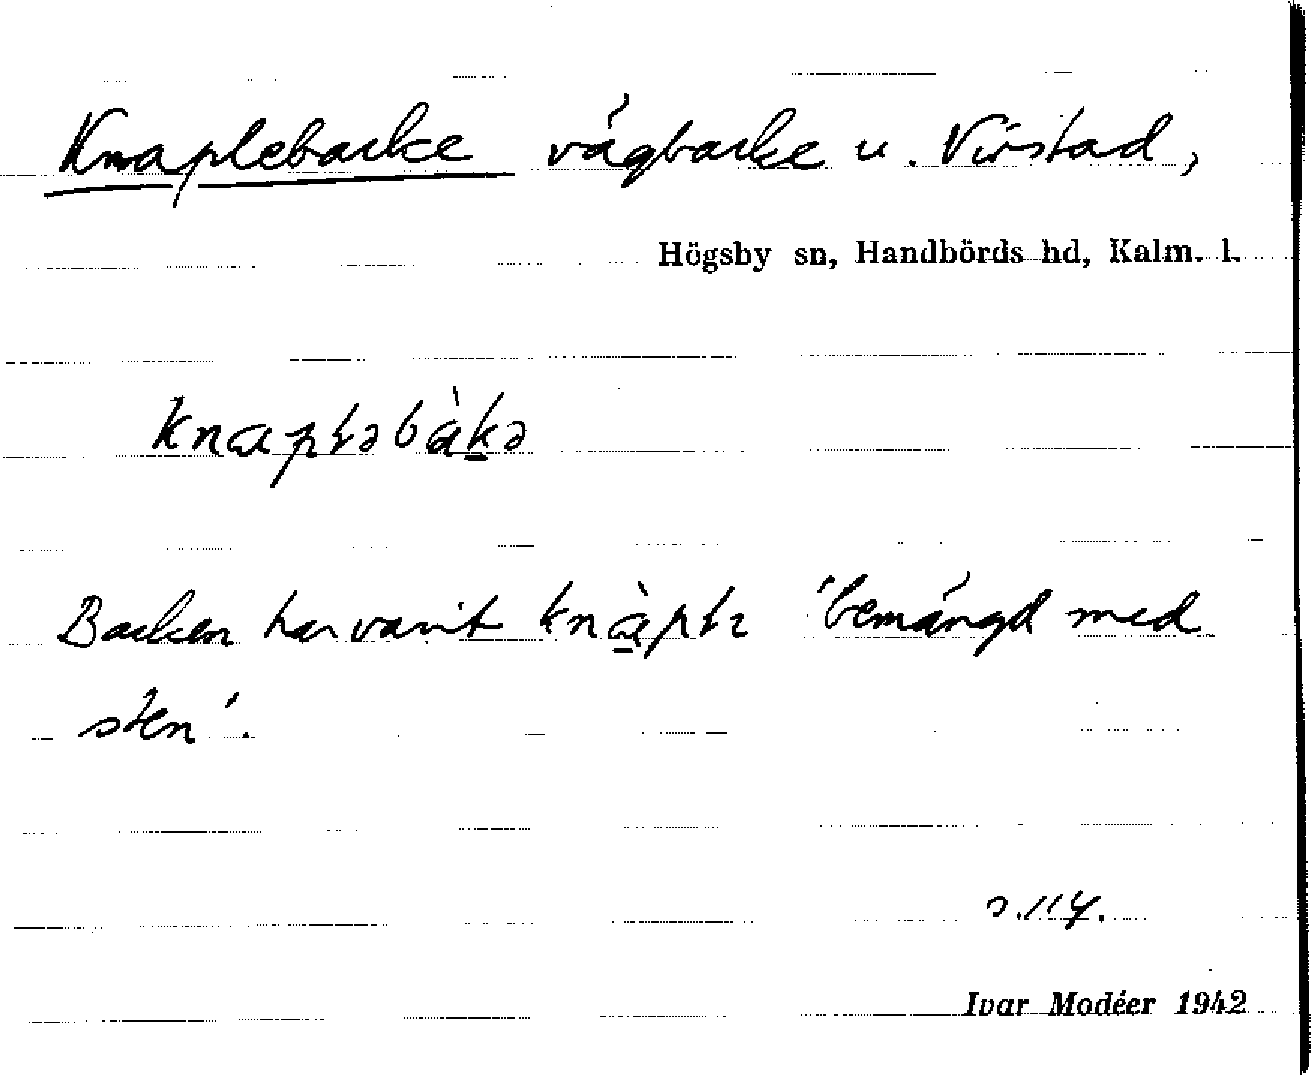 Knaplebacke vägbacke u. Virstad,
Högsby sn, Handbörds hd, Kalm. l.
knapləbàkə
Backen har varit knàplı 'bemängd med
sten'.
s. 114.
Ivar Modéer 1942